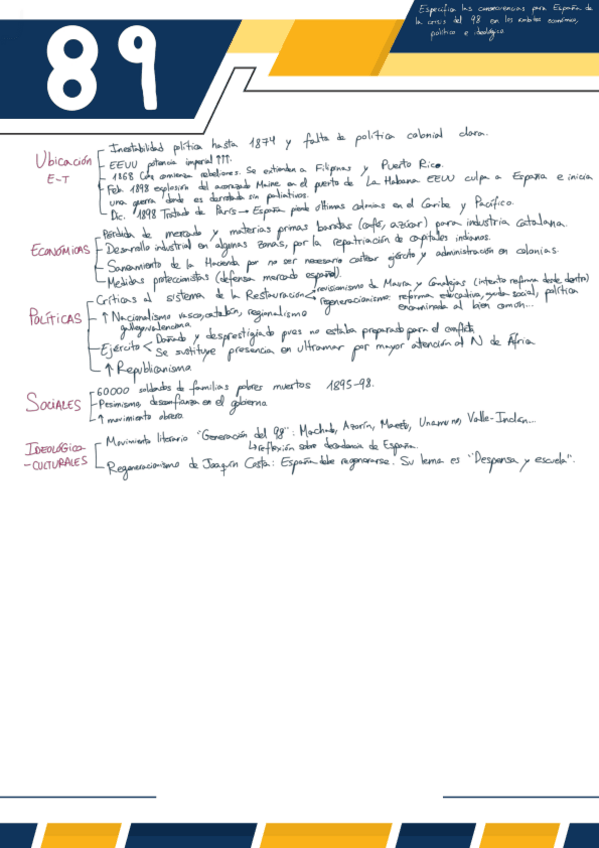 89
Especifica las consecuencias para España de
la crisis del 98 en los ámbitos económico,
político e ideológico.
Ubicación
E-T
Inestabilidad política hasta 1874 y falta de política colonial clara.
EEUU potencia imperial ↑↑↑.
1868 Cuba comienza rebeliones. Se extienden a Filipinas y Puerto Rico.
Feb. 1898 explosión del acorazado Maine en el puerto de La Habana EEUU culpa a España e inicia
una guerra donde es derrotada sin paliativos.
Dic. 1898 Tratado de París → España pierde últimas colonias en el Caribe y Pacífico.
ECONÓMICAS
Pérdida de mercado y materias primas baratas (café, azúcar) para industria Catalana.
Desarrollo industrial en algunas zonas, por la repatriación de capitales indianos.
Saneamiento de la Hacienda por no ser necesario costear ejército y administración en colonias.
Medidas proteccionistas (defensa mercado español).
POLÍTICAS
Críticas al sistema de la Restauración
revisionismo de Maura y Canalejas (intento reforma desde dentro)
regeneracionismo: reforma educativa, ayuda social, política
encaminada al bien común...
↑ Nacionalismo vasco, catalán, regionalismo
gallego, valenciano
Ejército < Dañado y desprestigiado pues no estaba preparado para el conflicto
Se sustituye presencia en ultramar por mayor atención al N de África
↑ Republicanismo
SOCIALES
60000 soldados de familias pobres muertos 1895-98.
Pesimismo, desconfianza en el gobierno
↑ movimiento obrero
IDEOLÓGICO
-CULTURALES
Movimiento literario "Generación del 98": Machado, Azorín, Maeztu, Unamuno, Valle-Inclán...
↳ reflexión sobre decadencia de España
Regeneracionismo de Joaquín Costa: España debe regenerarse. Su lema es "Despensa y escuela".